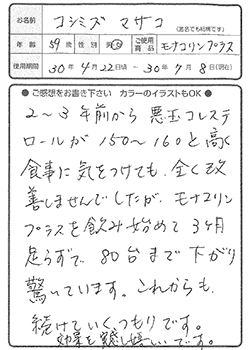 お名前 コシミズ マサコ
(匿名でも結構です)
年齢 59歳 性別 男・女 ご使用商品 モナコリンプラス
使用期間 30年4月22日頃〜30年7月8日(現在)
●ご感想をお書き下さい カラーのイラストもOK●
2〜3年前から悪玉コレステ
ロールが150〜160と高く
食事に気をつけても、全く改
善しませんでしたが、モナコリン
プラスを飲み始めて3ヶ月
足らずで80台まで下がり
驚いています。これからも、
続けていくつもりです。
効果を実感し嬉しいです。